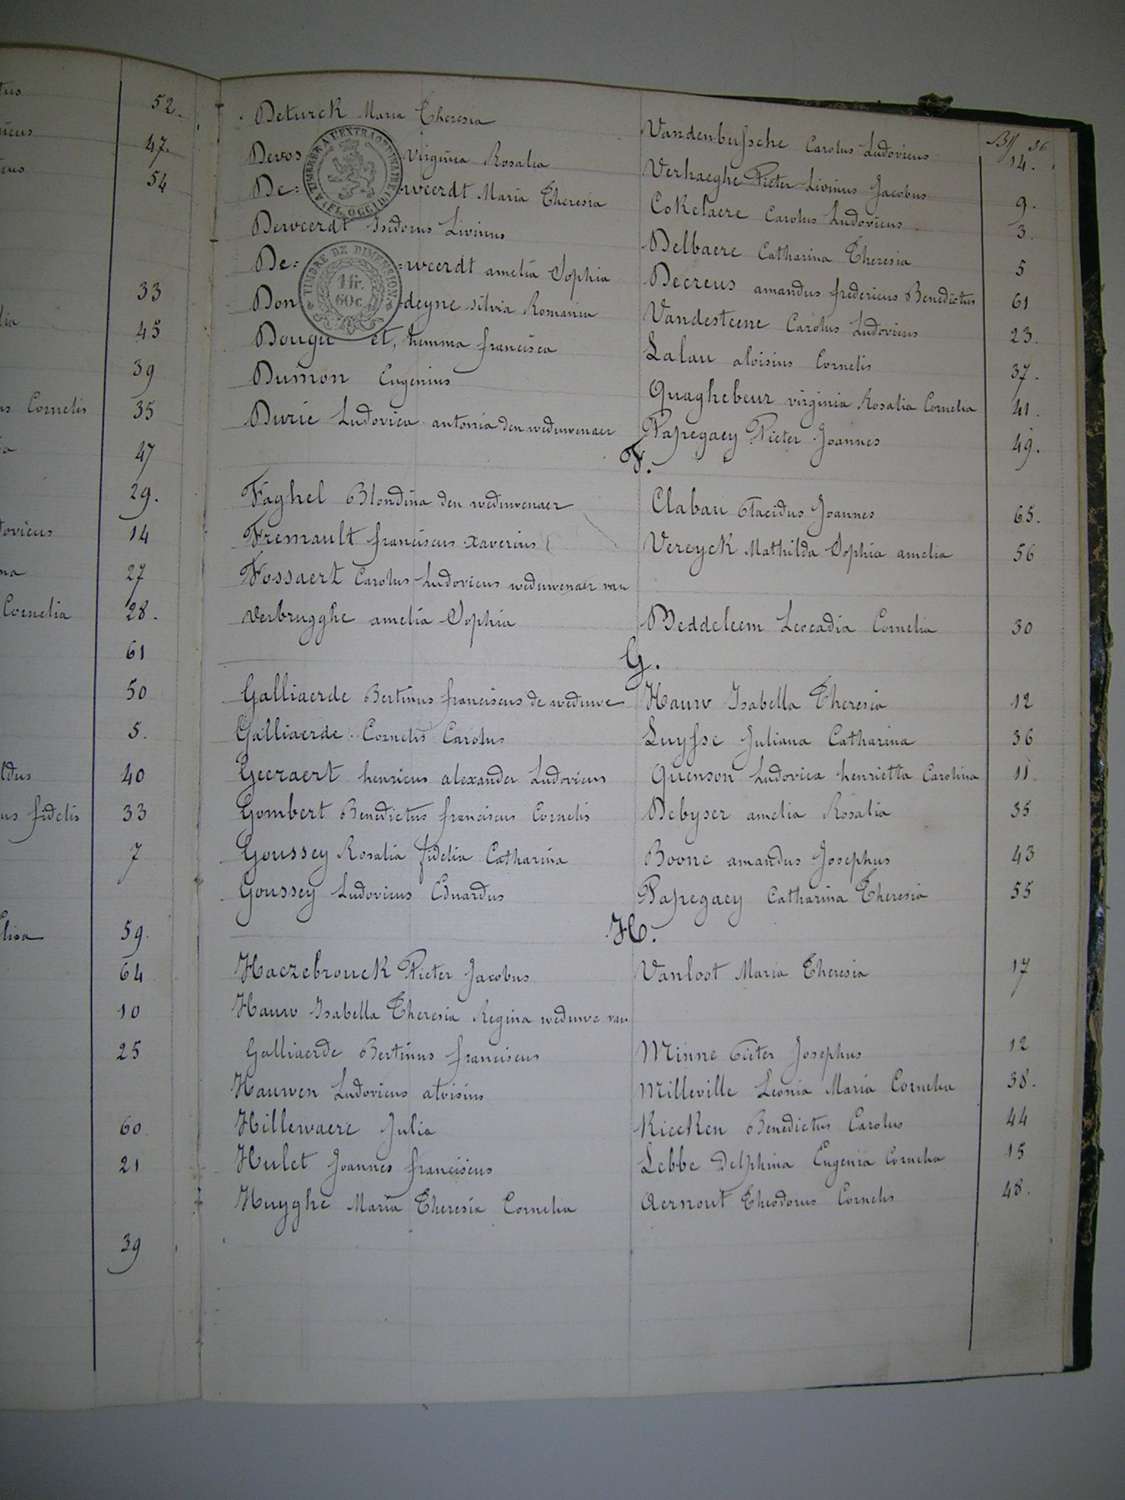 52.
47.
54
33
45
39
Cornelis 35
47
29.
14
27
Cornelia 28.
61
50
5.
40
fidelis 33
7
59.
64
10
25
60
21
39
Deturck Maria Theresia Vandenbussche Carolus Ludovicus 14.
Devos Virginia Rosalia Verhaeghe Pieter Livinus Jacobus 9.
De= =weerdt Maria Theresia Cokelaere Carolus Ludovicus 3.
Deweerdt Isidorus Livinus Delbaere Catharina Theresia 5
De= =weerdt amelia Sophia Decreus amandus fredericus Benedictus 61
Don deyne silvia Romania Vandesteene Carolus Ludovicus 23.
Dougu et, hemma francisca Lalau aloisius Cornelis 37.
Dumon Eugenius Quaghebeur virginia Rosalia Cornelia 41.
Durie Ludovica antonia den weduwenaer Papegaey Pieter Joannes 49.
F.
Faghel Blondina den weduwenaer Clabau Placidus Joannes 65.
Fremault franciscus xaverius Vereyck Mathilda Sophia amelia 56
Fossaert Carolus Ludovicus weduwenaer van
Verbrugghe amelia Sophia Beddeleem Leocadia Cornelia 30
G.
Galliaerde Bertinus franciscus de weduwe Hauw Isabella Theresia 12
Galliaerde Cornelis Carolus Luysse Juliana Catharina 36
Geeraert henricus alexander Ludovicus Quenson Ludovica henrietta Carolina 11
Gombert Benedictus franciscus Cornelis Debyser amelia Rosalia 35
Goussey Rosalia fidelia Catharina Boone amandus Josephus 43
Goussey Ludovicus Eduardus Papegaey Catharina Theresia 55
H.
Haezebrouck Pieter Jacobus Vanloot Maria Theresia 17
Hauw Isabella Theresia Regina weduwe van
Galliaerde Bertinus franciscus Minne Pieter Josephus 12
Hauwen Ludovicus aloisius Milleville Leonia Maria Cornelia 38.
Hillewaere Julia Kiecken Benedictus Carolus 44
Hulet Joannes franciscus Lebbe Delphina Eugenia Cornelia 15
Huyghe Maria Theresia Cornelia Aernout Theodorus Cornelis 48.
TIMBRE DE DIMENSION
1 fr.
60 c.